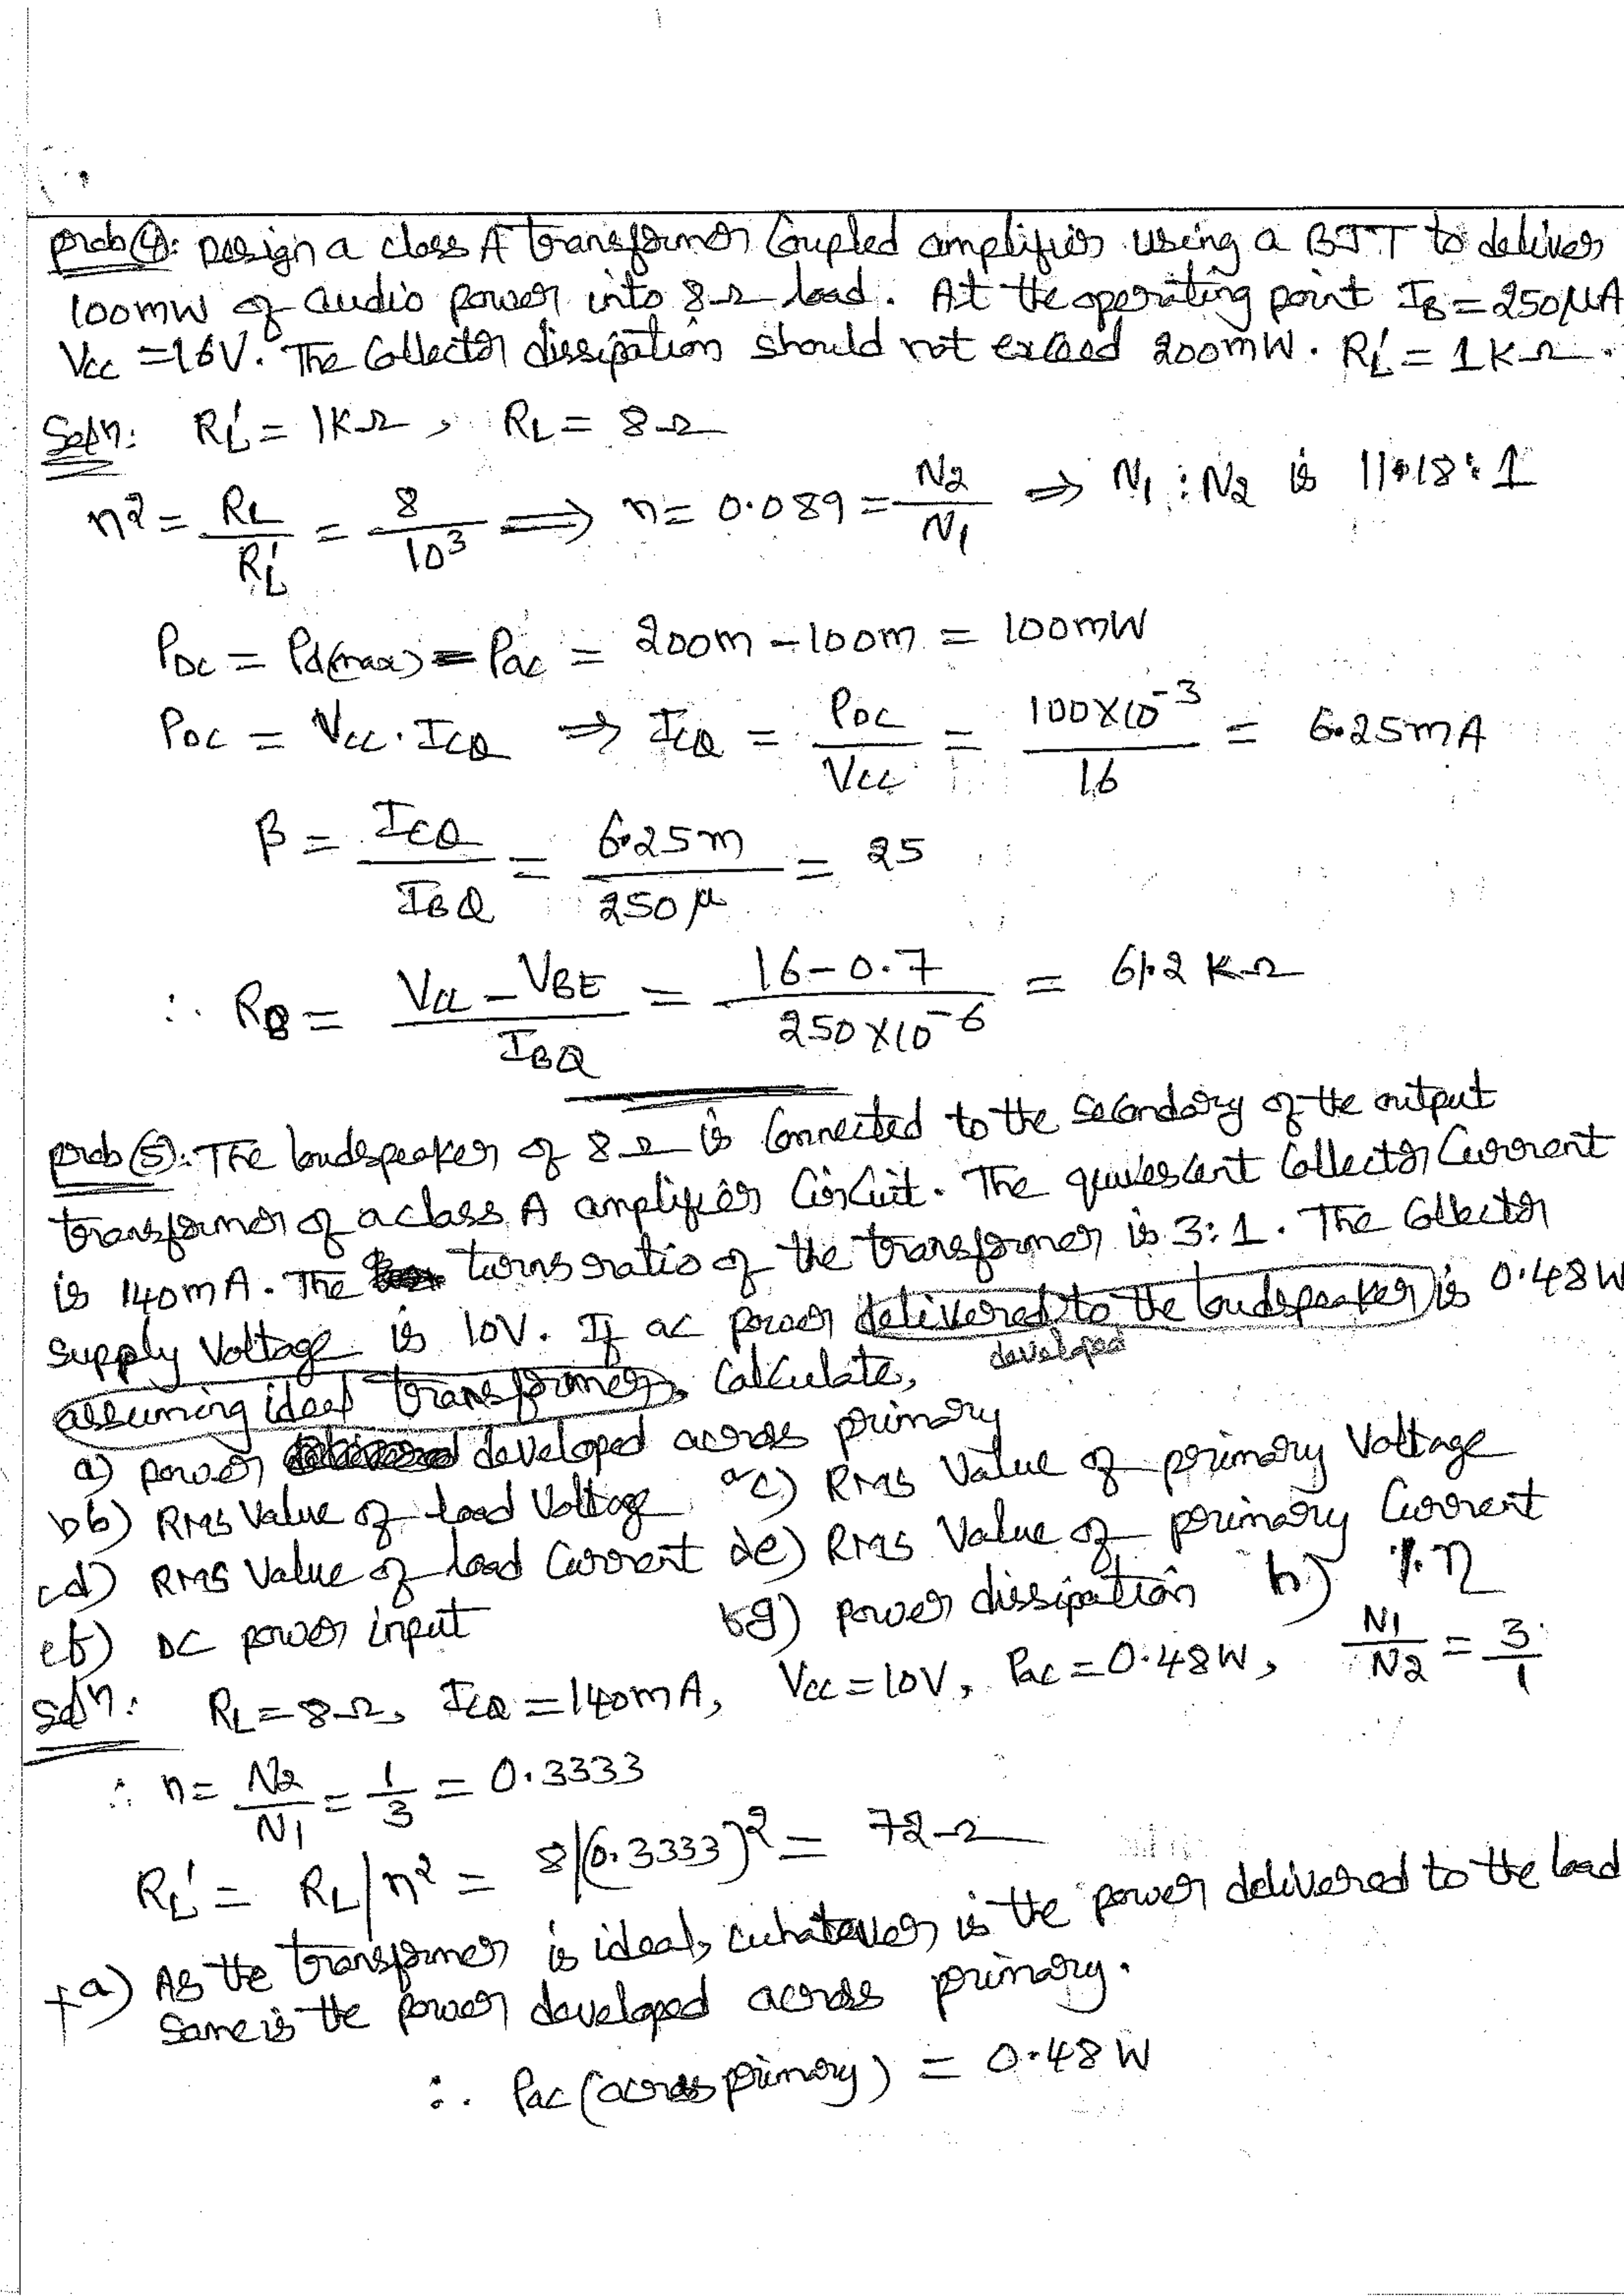 prob(4): Design a class A transformer Coupled amplifier using a BJT to deliver
100mW of audio power into 8Ω load. At the operating point IB=250μA
Vcc=16V. The Collector dissipation should not exceed 200mW. RL'=1KΩ.
Soln: RL'=1KΩ, RL=8Ω
n²=RL/RL'=8/10³ ⟹ n=0.089=N2/N1 ⟹ N1:N2 is 11.18:1
PDC=Pd(max)-Pac=200m-100m=100mW
PDC=Vcc.ICQ ⇒ ICQ=PDC/VCC=100X10⁻³/16=6.25mA
β=ICQ/IBQ=6.25m/250μ=25
∴ RB=Vcc-VBE/IBQ=16-0.7/250X10⁻⁶=61.2KΩ
prob(5): The loudspeaker of 8Ω is Connected to the secondary of the output
transformer of a class A amplifier Circuit. The quiescent Collector Current
is 140mA. The turns ratio of the transformer is 3:1. The Collector
supply Voltage is 10V. If ac power delivered to the loudspeaker is 0.48W
developed
assuming ideal transformer, Calculate,
a) power developed across primary
b b) RMS Value of load Voltage a c) RMS Value of primary Voltage
c d) RMS Value of load Current d e) RMS Value of primary Current
e f) DC power input g) power dissipation h) %η
Soln: RL=8Ω, ICQ=140mA, Vcc=10V, Pac=0.48W, N1/N2=3/1
∴ n=N2/N1=1/3=0.3333
RL'=RL/n²=8/(0.3333)²=72Ω
f a) As the transformer is ideal, whatever is the power delivered to the load
same is the power developed across primary.
∴ Pac (across primary)=0.48W